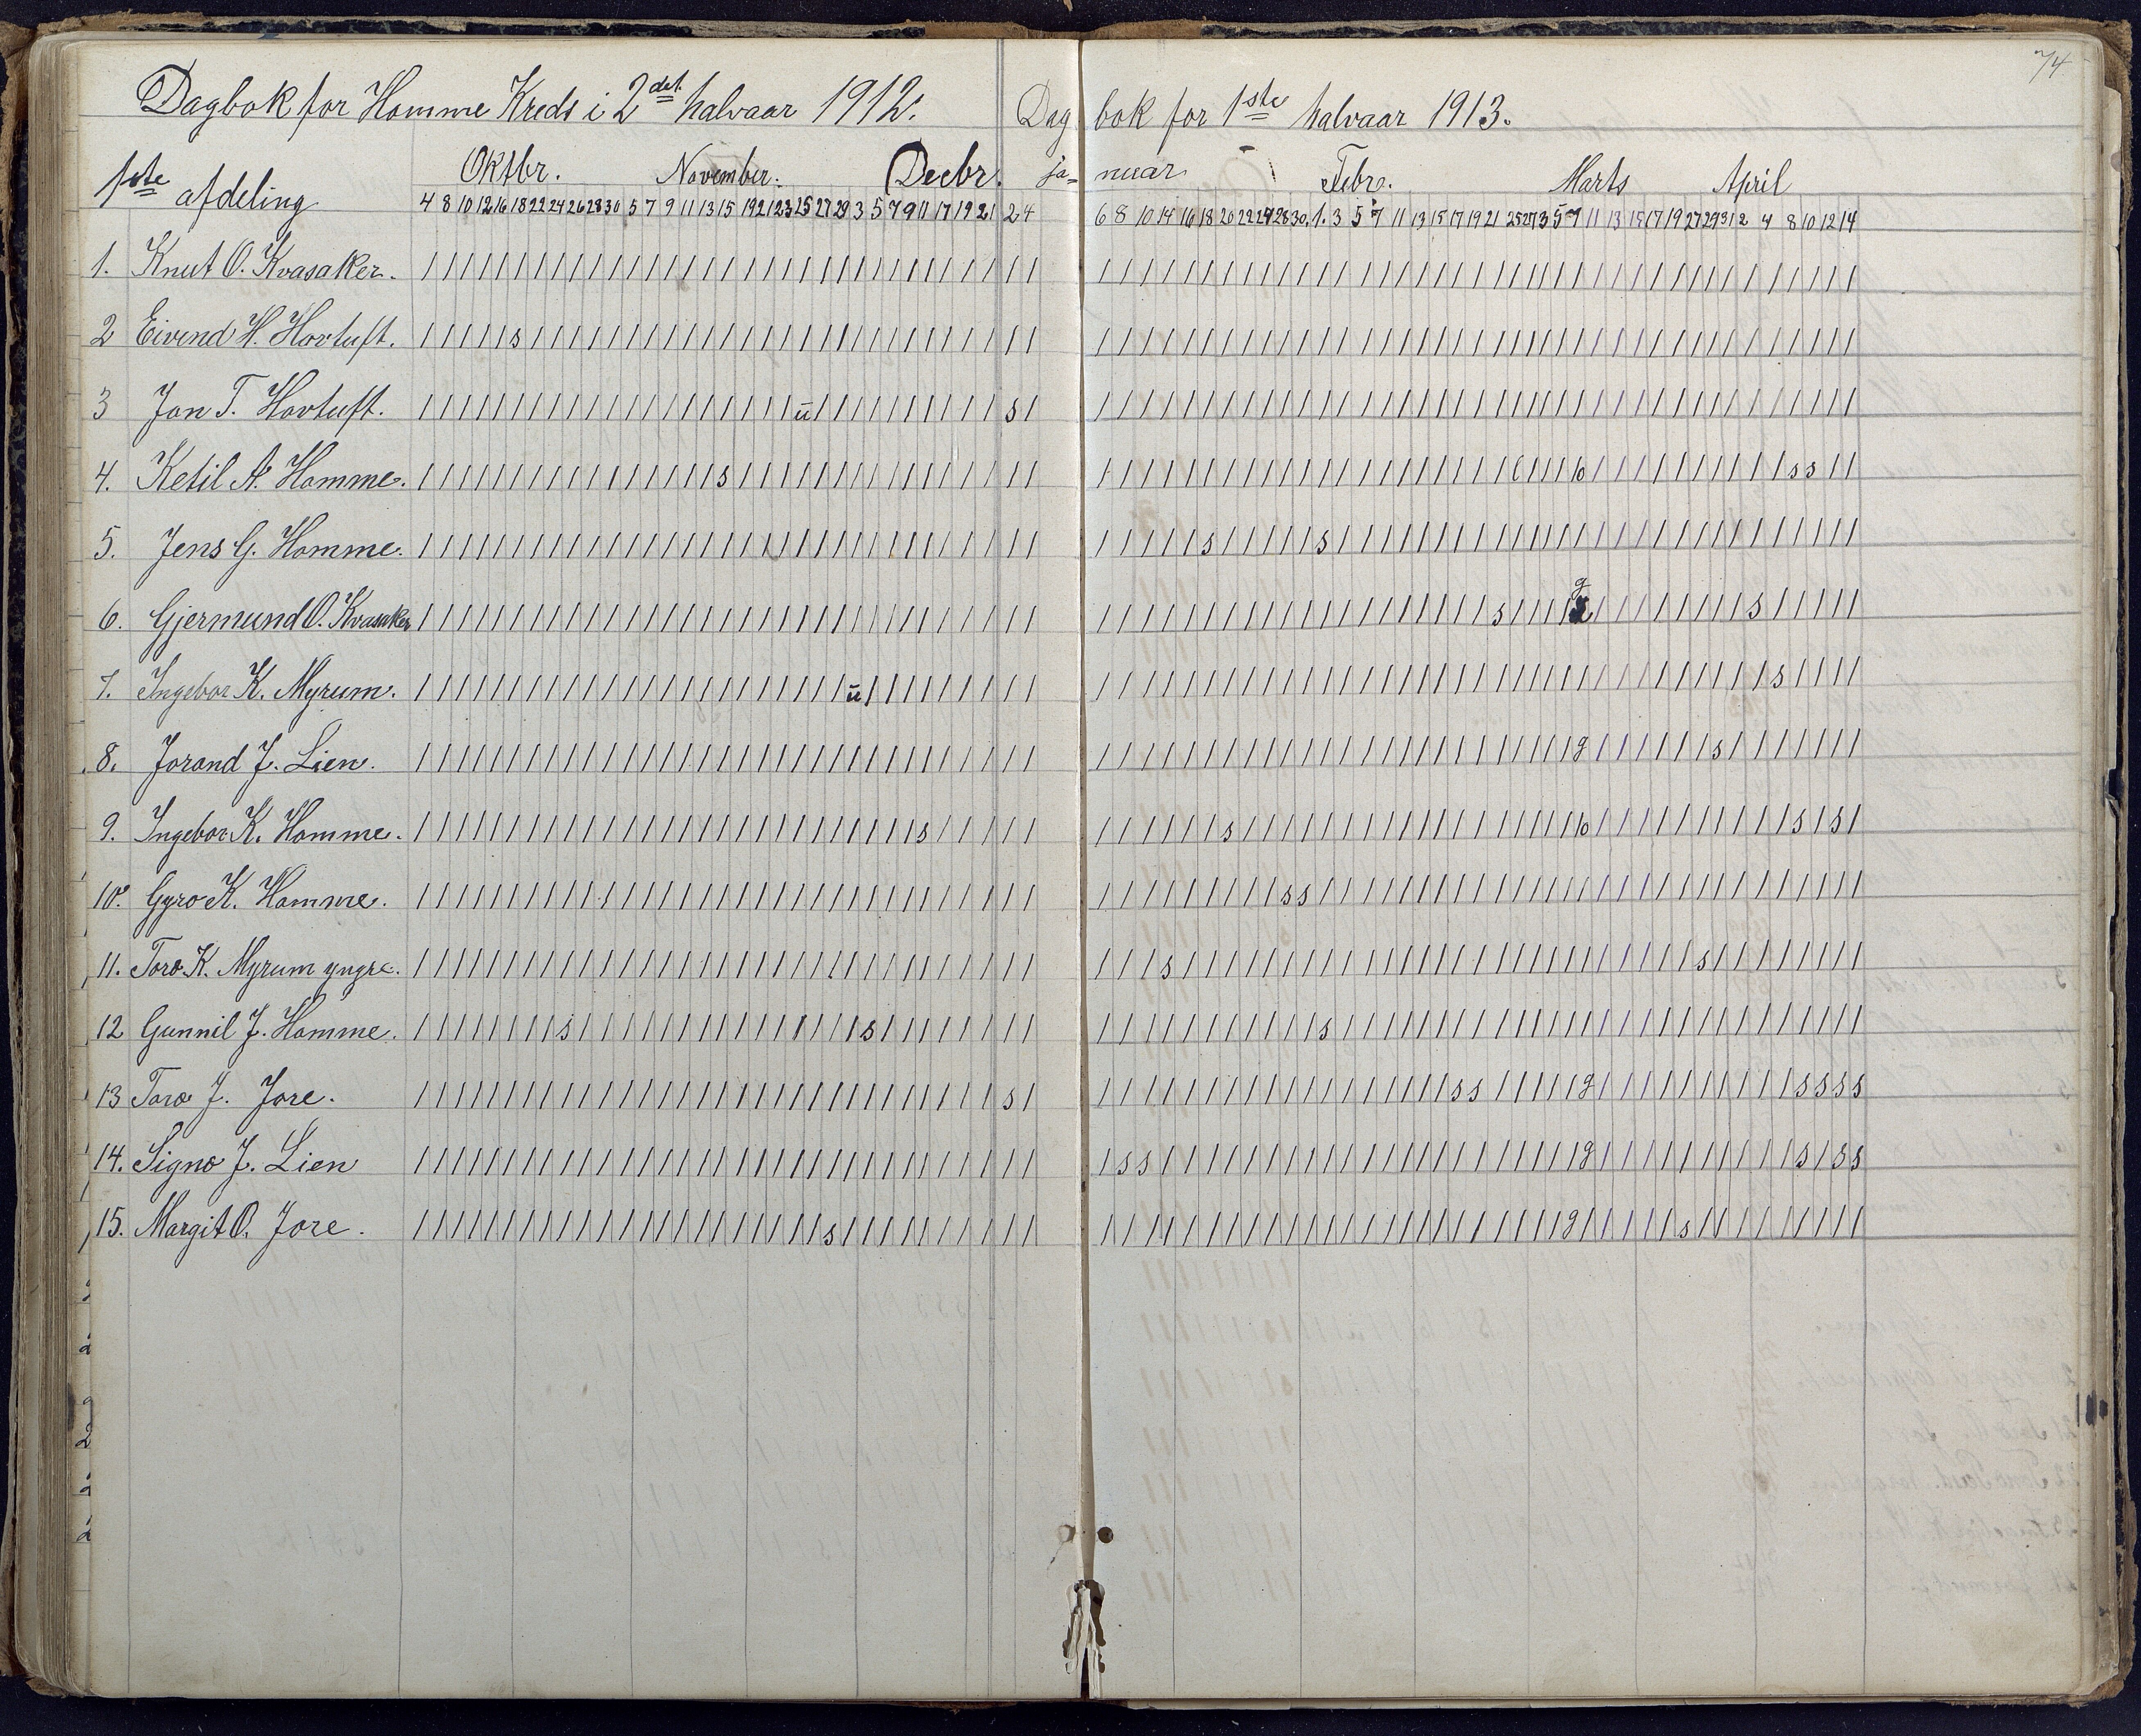 74
Dagbok for Homme Kreds i 2det halvaar 1912.
Dagbok for 1ste halvaar 1913.
1ste afdeling
Oktbr. November. Decbr. ja= nuar Febr. Marts April
4 8 10 12 16 18 22 24 26 28 30 5 7 9 11 13 15 19 21 23 25 27 29 3 5 7 9 11 17 19 21 2 4
6 8 10 14 16 18 20 22 24 28 30 1. 3 5 7 11 13 15 17 19 21 25 27 3 5 9 11 13 15 17 19 27 29 31 2 4 8 10 12 14
1. Knut O. Kvasaker.
2 Eivind H. Hovtuft. s
3 Jon T. Hovtuft. u s
4. Ketil A. Homme. s 6 6 s s
5. Jens G. Homme. s s
6. Gjermund O. Kvasaker s g s
7. Ingebor K. Myrum. u s
8. Jorand J. Lien. g s
9. Ingebor K. Homme. s s 6 s s
10. Gyro K. Homme. s s
11. Toro K. Myrum yngre. s s
12 Gunnil J. Homme. s s s
13 Toro J. Jore. s s s g s s s s
14. Signo J. Lien s s g s s s
15. Margit O. Jore. s g s